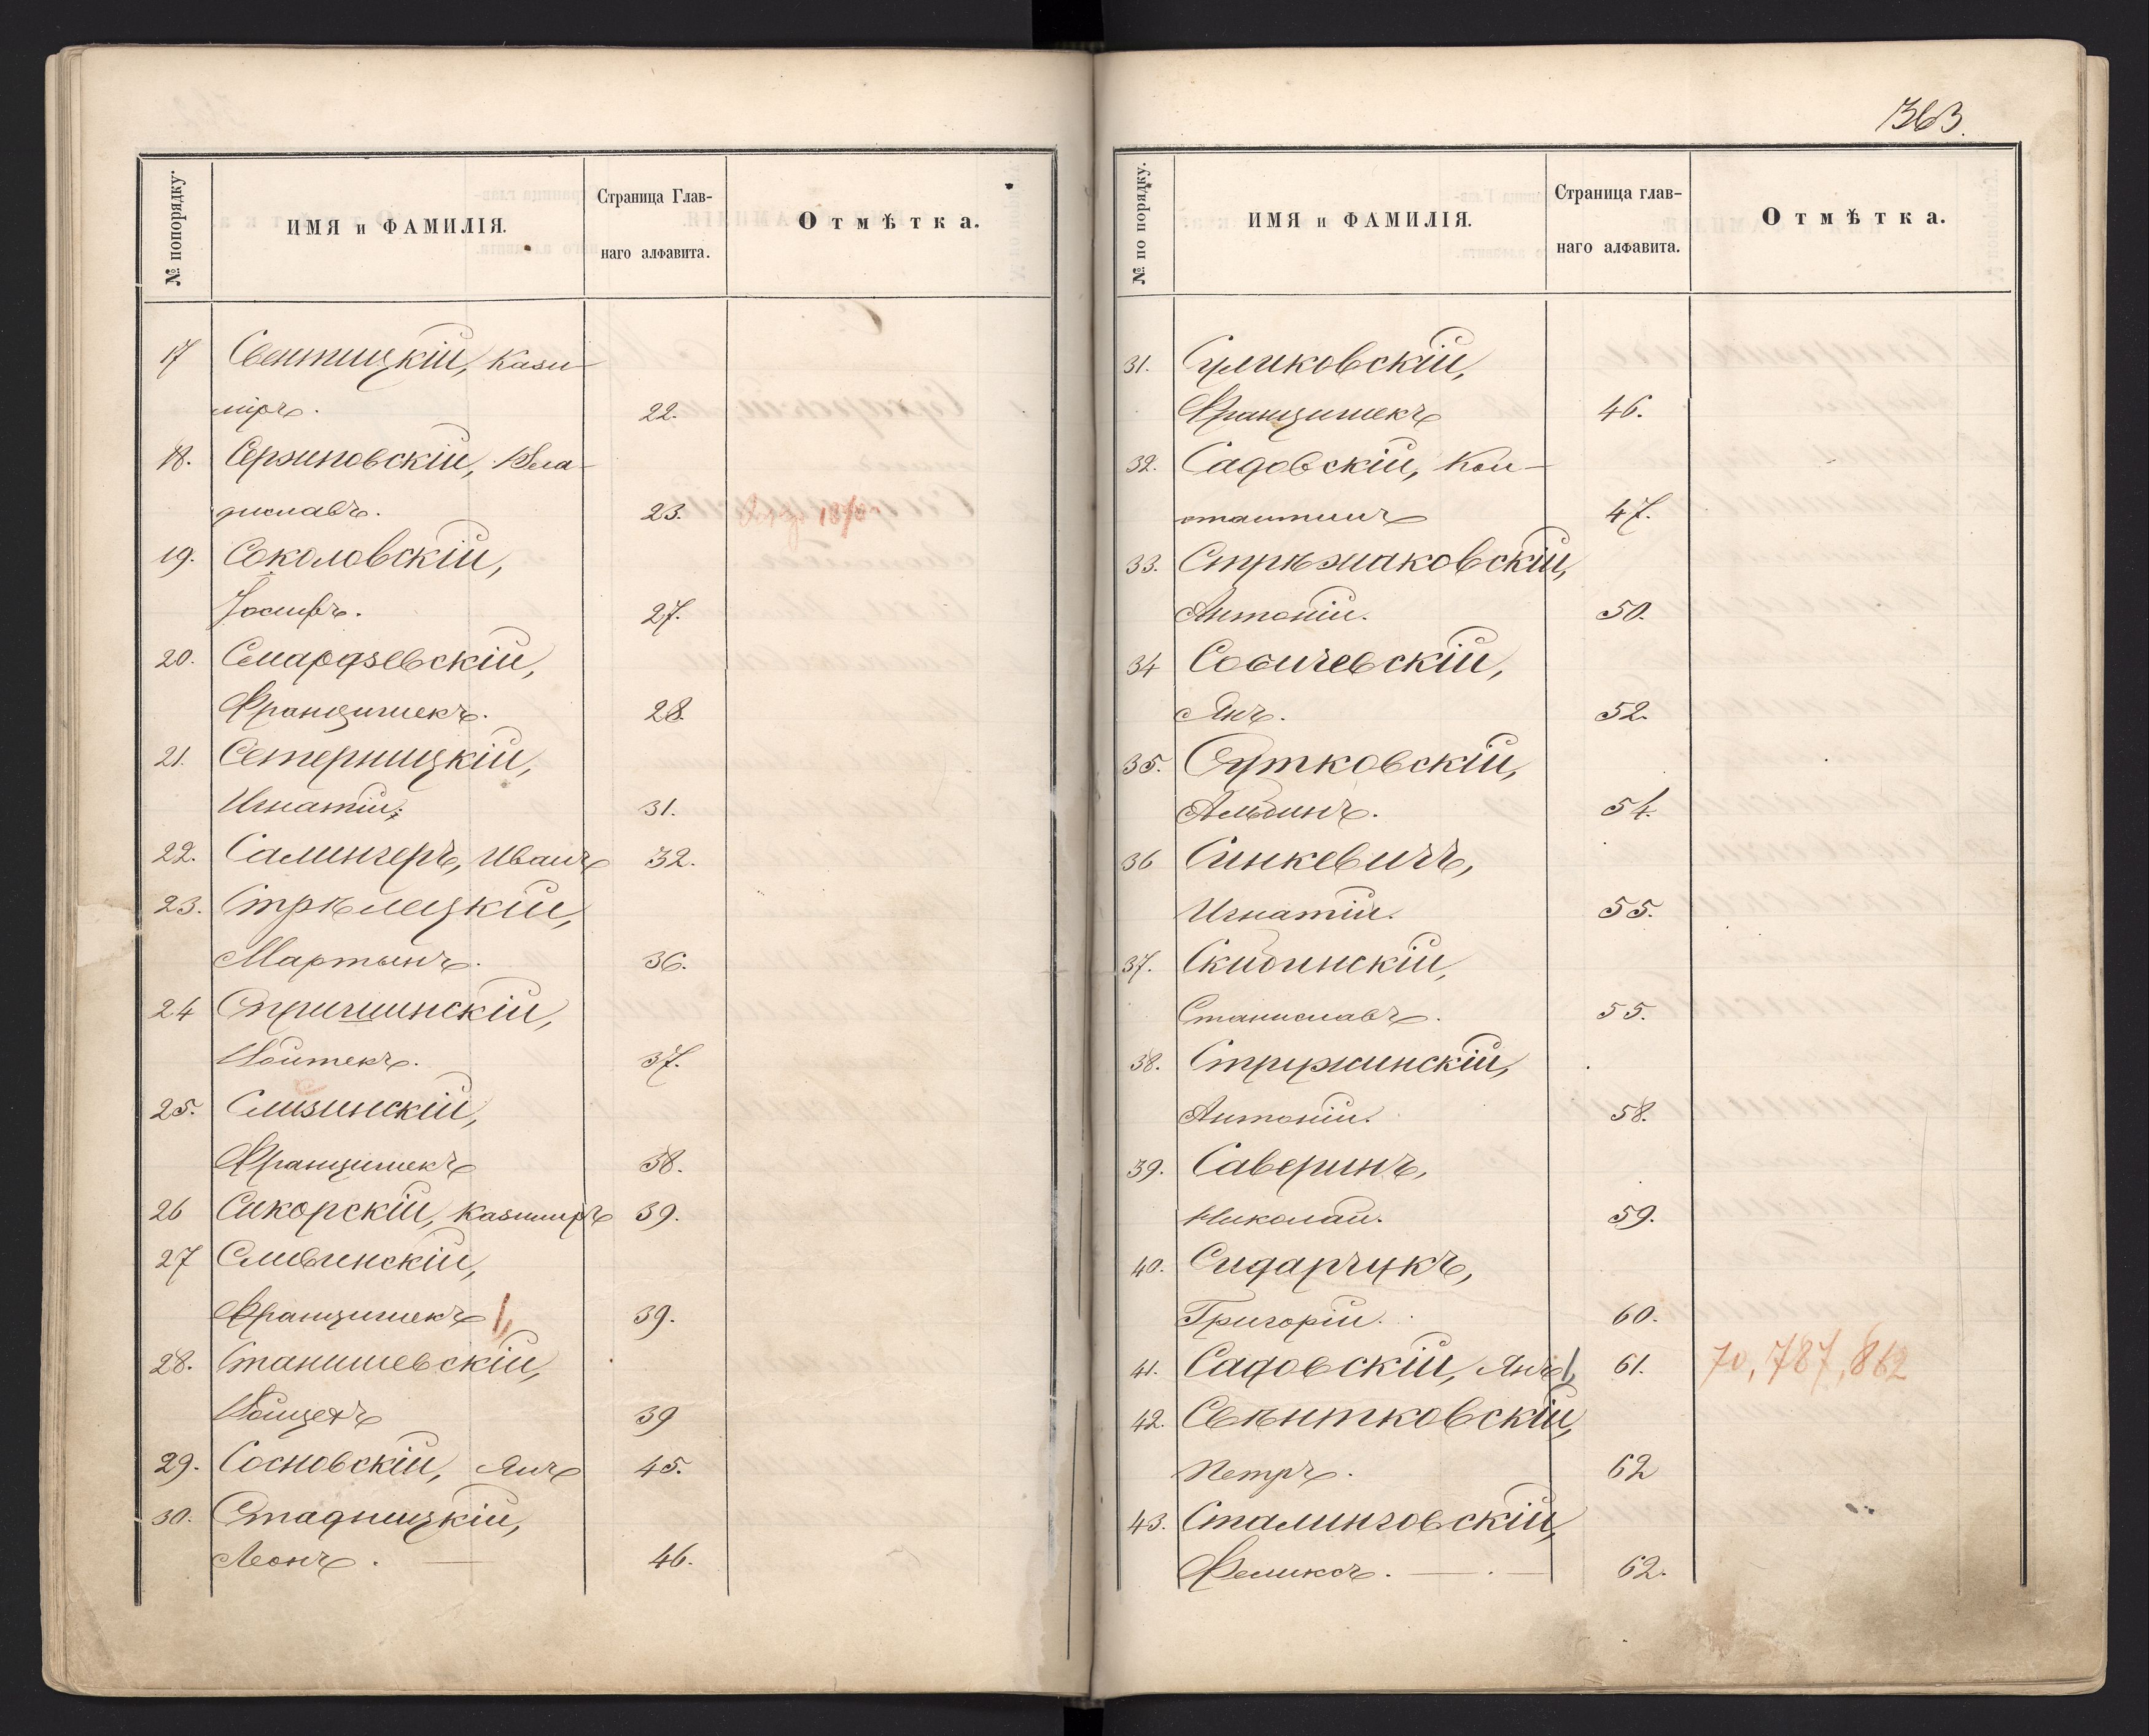 № попорядку.
ИМЯ и ФАМИЛІЯ.
Страница Глав-
наго алфавита.
Отмѣтка.
17 Свентицкій, Кази-
міръ. 22.
18. Сержповскій, Вла-
диславъ. 23.
19. Соколовскій,
Іосифъ. 27.
20. Смардзевскій,
Францишекъ. 28.
21. Сетерницкій,
Игнатій. 31.
22. Салингеръ, Иванъ 32.
23. Стрѣлецкій,
Мартынъ. 36.
24 Стричшинскій,
Войтекъ. 37.
25. Слизинскій,
Францишекъ 38.
26 Сикорскій, Казимиръ 39.
27 Сливинскій,
Францишекъ 39.
28. Станишевскій,
Войцехъ 39
29. Сосновскій, Янъ 45.
30. Стадницкій,
Леонъ. 46.
363.
№ по порядку.
ИМЯ и ФАМИЛІЯ.
Страница глав-
наго алфавита.
Отмѣтка.
31. Суликовскій,
Францишекъ 46.
32. Садовскій, Кон-
стантинъ 47.
33. Стрѣмаковскій,
Антоній. 50.
34 Собичевскій,
Янъ. 52.
35. Сутковскій,
Альбинъ. 54.
36 Синкевичъ,
Игнатій. 55.
37. Скибинскій,
Станиславъ. 55.
38. Стружинскій,
Антоній. 58.
39. Саверинъ,
Николай. 59.
40. Сидарчукъ,
Григорій. 60.
41. Садовскій, Янъ 61. 70, 787, 862
42. Свѣнтковскій,
Петръ. 62
43. Сталинговскій,
Феликсъ. 62.